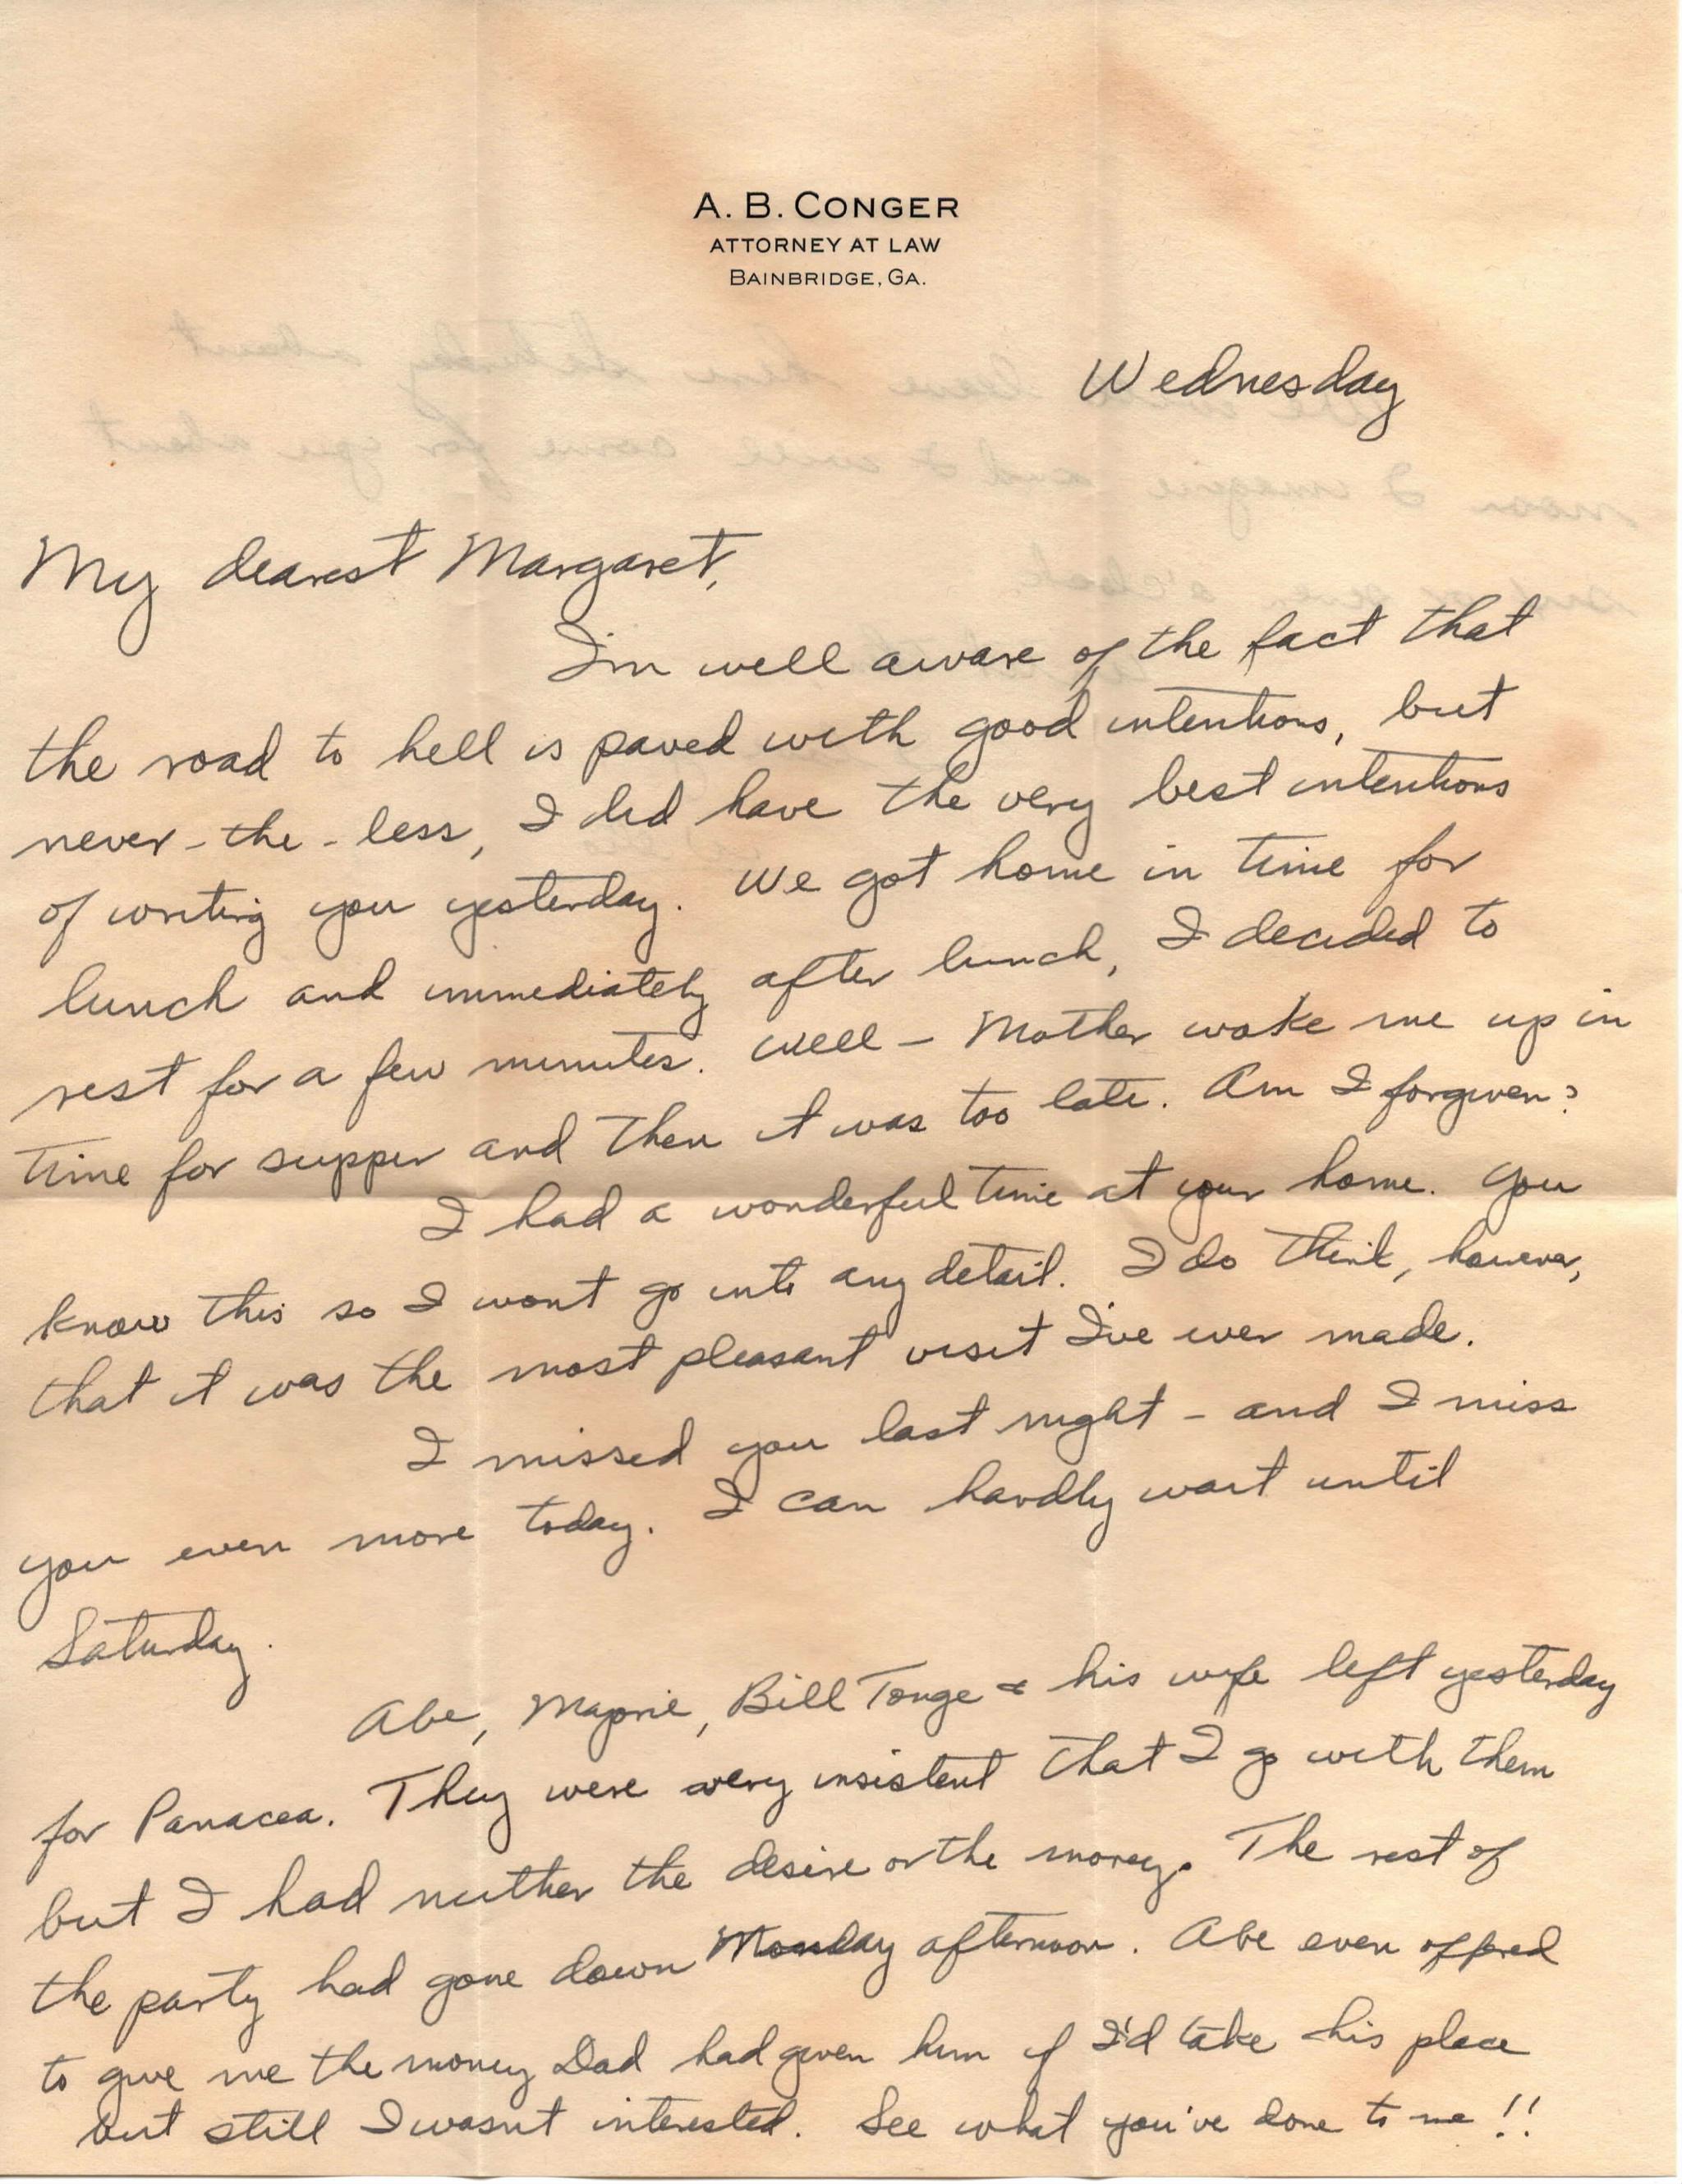 A. B. CONGER
ATTORNEY AT LAW
BAINBRIDGE, GA.
Wednesday
My dearest Margaret,
I'm well aware of the fact that
the road to hell is paved with good intentions, but
never-the-less, I did have the very best intentions
of writing you yesterday. We got home in time for
lunch and immediately after lunch, I decided to
rest for a few minutes. Well - Mother woke me up in
time for supper and then it was too late. Am I forgiven?
I had a wonderful time at your home. You
know this so I wont go into any detail. I do think, however,
that it was the most pleasant visit I've ever made.
I missed you last night - and I miss
you even more today. I can hardly wait until
Saturday.
Abe, Majorie, Bill Tonge & his wife left yesterday
for Panacea. They were very insistent that I go with them
but I had neither the desire or the money. The rest of
the party had gone down Monday afternoon. Abe even offered
to give me the money Dad had given him if I'd take his place
but still I wasn't interested. See what you've done to me!!